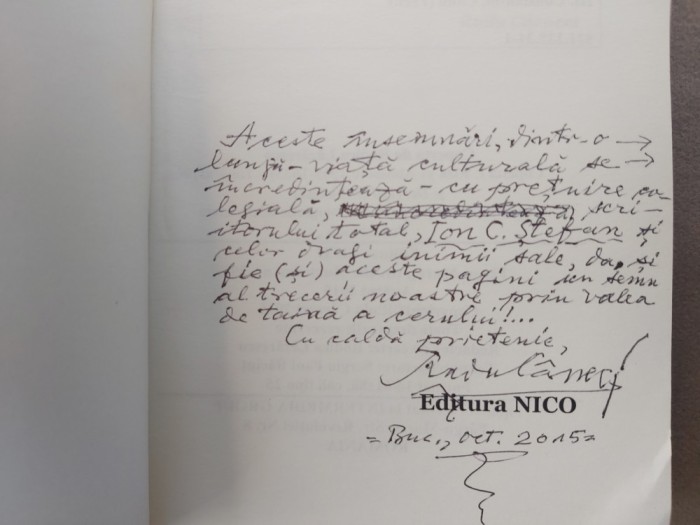 Aceste însemnări, dintr-o →
lungă-viață culturală se →
încredințează - cu prețuire co-
legială, scri-
itorului total, Ion C. Ștefan și
celor dragi inimii sale, da, și
fie (și) aceste pagini un semn
al trecerii noastre prin valea
de taină a cerului!...
Cu caldă prietenie,
Radu Cârneci
Editura NICO
= Buc., oct. 2015 =